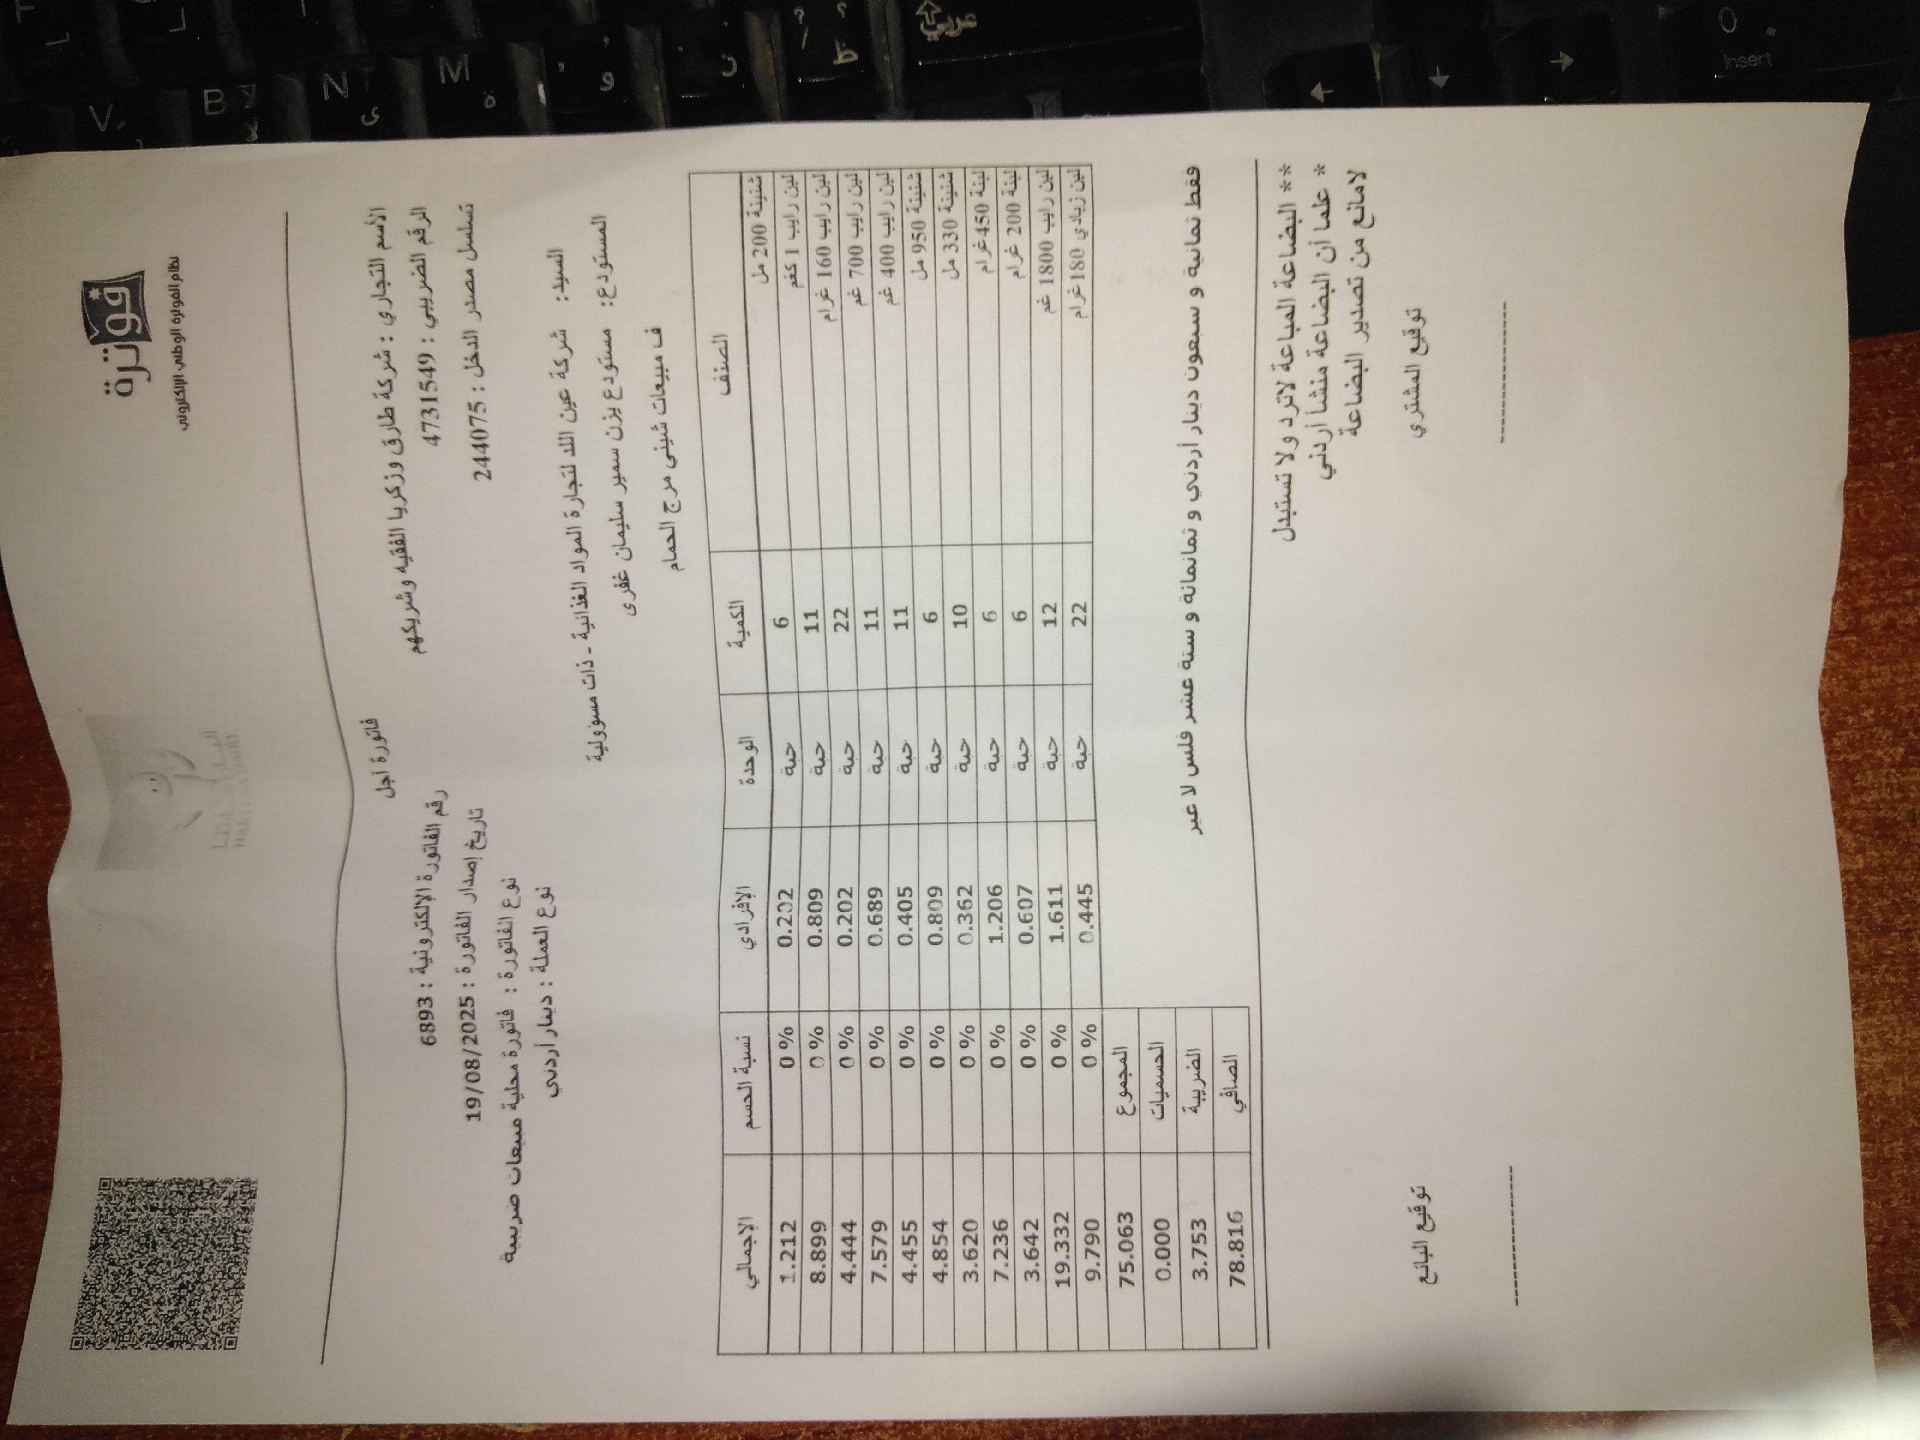 فوترة
نظام الفوترة الوطني الإلكتروني
فاتورة آجل
الأسم التجاري : شركة طارق وزكريا الفقيه وشريكهم
الرقم الضريبي : 4731549
تسلسل مصدر الدخل : 244075
رقم الفاتورة الإلكترونية : 6893
تاريخ إصدار الفاتورة : 19/08/2025
نوع الفاتورة : فاتورة محلية مبيعات ضريبية
نوع العملة : دينار أردني
السيد: شركة عين اللد لتجارة المواد الغذائية - ذات مسؤولية
المستودع: مستودع يزن سمير سليمان غفرى
ف مبيعات شيني مرج الحمام
الصنف الكمية الوحدة الإفرادي نسبة الحسم الاجمالي
شنينة 200 مل 6 حبة 0.202 0 % 1.212
لبن رايب 1 كغم 11 حبة 0.809 0 % 8.899
لبن رايب 160 غرام 22 حبة 0.202 0 % 4.444
لبن رايب 700 غم 11 حبة 0.689 0 % 7.579
لبن رايب 400 غم 11 حبة 0.405 0 % 4.455
شنينة 950 مل 6 حبة 0.809 0 % 4.854
شنينة 330 مل 10 حبة 0.362 0 % 3.620
لبنة 450غرام 6 حبة 1.206 0 % 7.236
لبنة 200 غرام 6 حبة 0.607 0 % 3.642
لبن رايب 1800 غم 12 حبة 1.611 0 % 19.332
لبن زبادي 180غرام 22 حبة 0.445 0 % 9.790
المجموع 75.063
الحسميات 0.000
الضريبة 3.753
الصافي 78.816
فقط ثمانية و سبعون دينار أردني و ثمانمائة و ستة عشر فلس لا غير
** البضاعة المباعة لاترد ولا تستبدل
* علما أن البضاعة منشأ أردني
لامانع من تصدير البضاعة
توقيع المشتري توقيع البائع
V B N M
ى ة و ز ظ
عربي
Insert
0